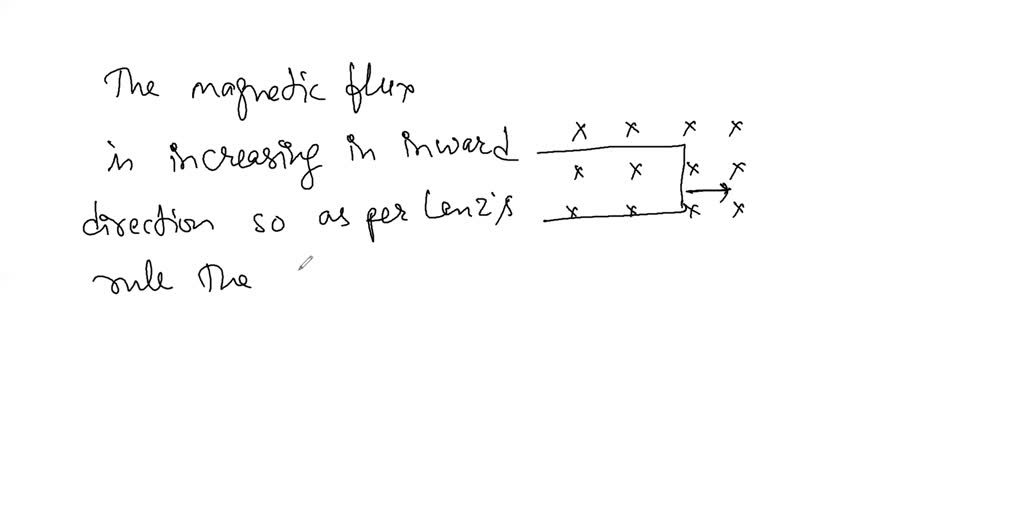 The magnetic flux
is increasing in inward
direction so as per Lenz's
rule the
x x x x
x x x x
x x x x